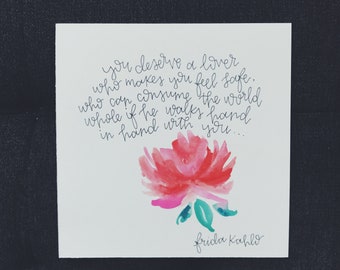 you deserve a lover
who makes you feel safe.
who can consume the world
whole if he walks hand
in hand with you...
frida kahlo